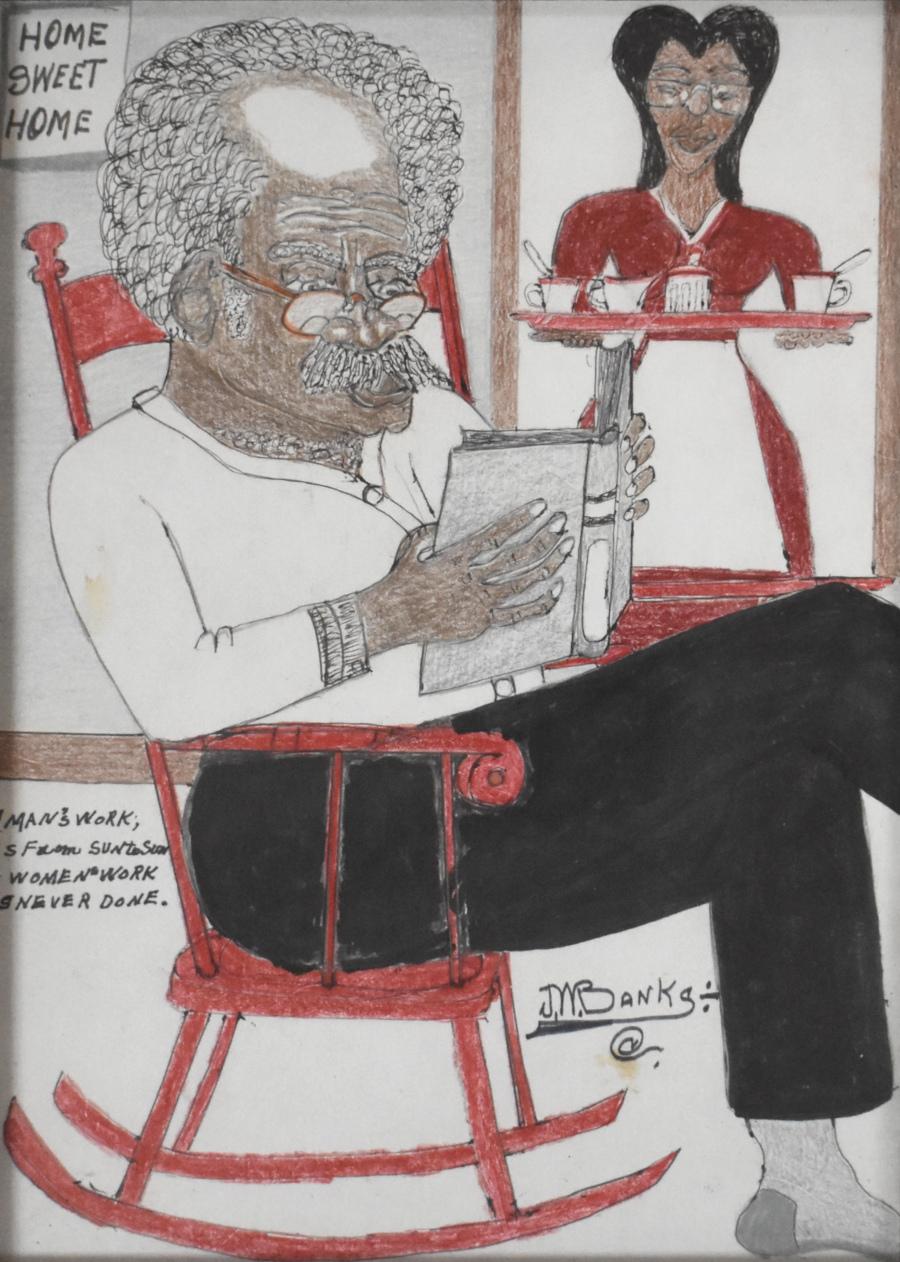 HOME
SWEET
HOME
MAN'S WORK;
S From SUN to Sun
WOMEN'S WORK
S NEVER DONE.
J.W. BANKS ÷
@